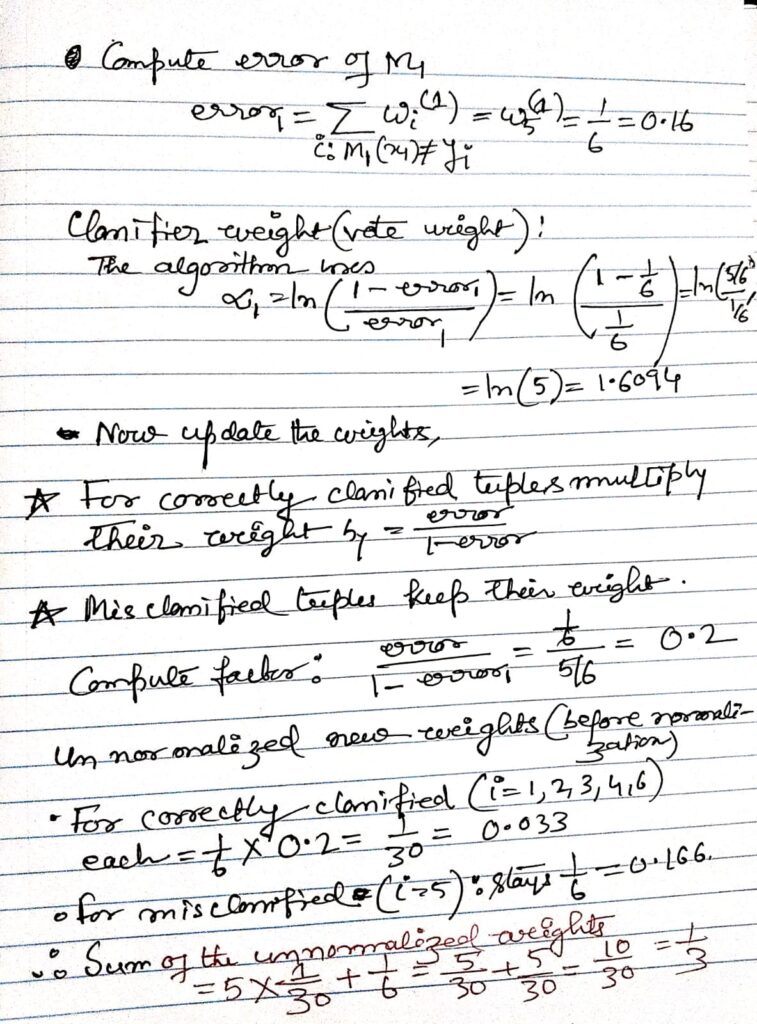 Compute error of M₁
error₁ = Σ wᵢ⁽¹⁾ = w₅⁽¹⁾ = 1/6 = 0.16
i: M₁(xᵢ) ≠ yᵢ
Classifier weight (vote weight):
The algorithm uses
α₁ = ln((1 - error₁)/error₁) = ln((1 - 1/6)/(1/6)) = ln((5/6)/(1/6))
= ln(5) = 1.6094
Now update the weights,
☆ For correctly classified tuples multiply
their weight by = error/(1-error)
☆ Misclassified tuples keep their weight.
Compute factor: error/(1 - error₁) = (1/6)/(5/6) = 0.2
Unnormalized new weights (before normali-
zation)
• For correctly classified (i = 1, 2, 3, 4, 6)
each = 1/6 × 0.2 = 1/30 = 0.033
• for misclassified = (i=5): stays 1/6 = 0.166.
∴ Sum of the unnormalized weights
= 5 × 1/30 + 1/6 = 5/30 + 5/30 = 10/30 = 1/3